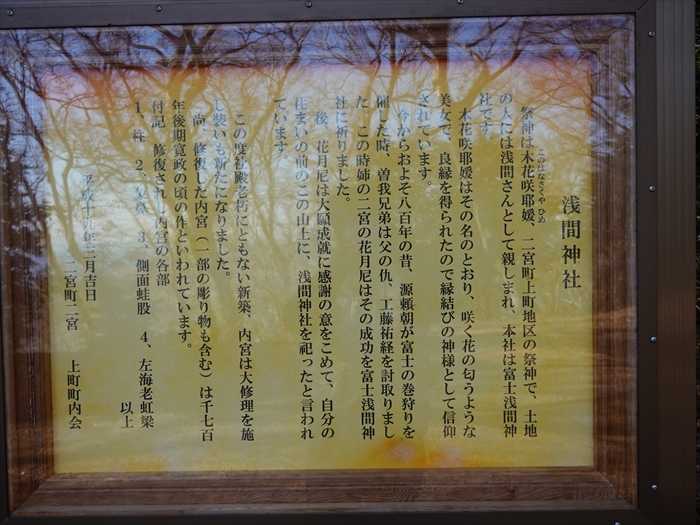 浅間神社
このはなさくや ひめ
祭神は木花咲耶媛、二宮町上町地区の祭神で、土地
の人には浅間さんとして親しまれ、本社は富士浅間神
社です。
木花咲耶媛はその名のとおり、咲く花の匂うような
美女で、良縁を得られたので縁結びの神様として信仰
されています。
今からおよそ八百年の昔、源頼朝が富士の巻狩りを
催した時、曽我兄弟は父の仇、工藤祐経を討取りまし
た。この時姉の二宮の花月尼はその成功を富士浅間神
社に祈りました。
後、花月尼は大願成就に感謝の意をこめて、自分の
住まいの前のこの山上に、浅間神社を祀ったと言われ
ています。
この度社殿老朽にともない新築、内宮は大修理を施
し装いも新たになりました。
尚、修復した内宮（一部の彫り物も含む）は千七百
年後期寛政の頃の作といわれています。
付記 修復された内宮の各部
1、柱 2、 3、側面蛙股 4、左海老虹梁
以上
平成十九年三月吉日
二宮町二宮 上町町内会